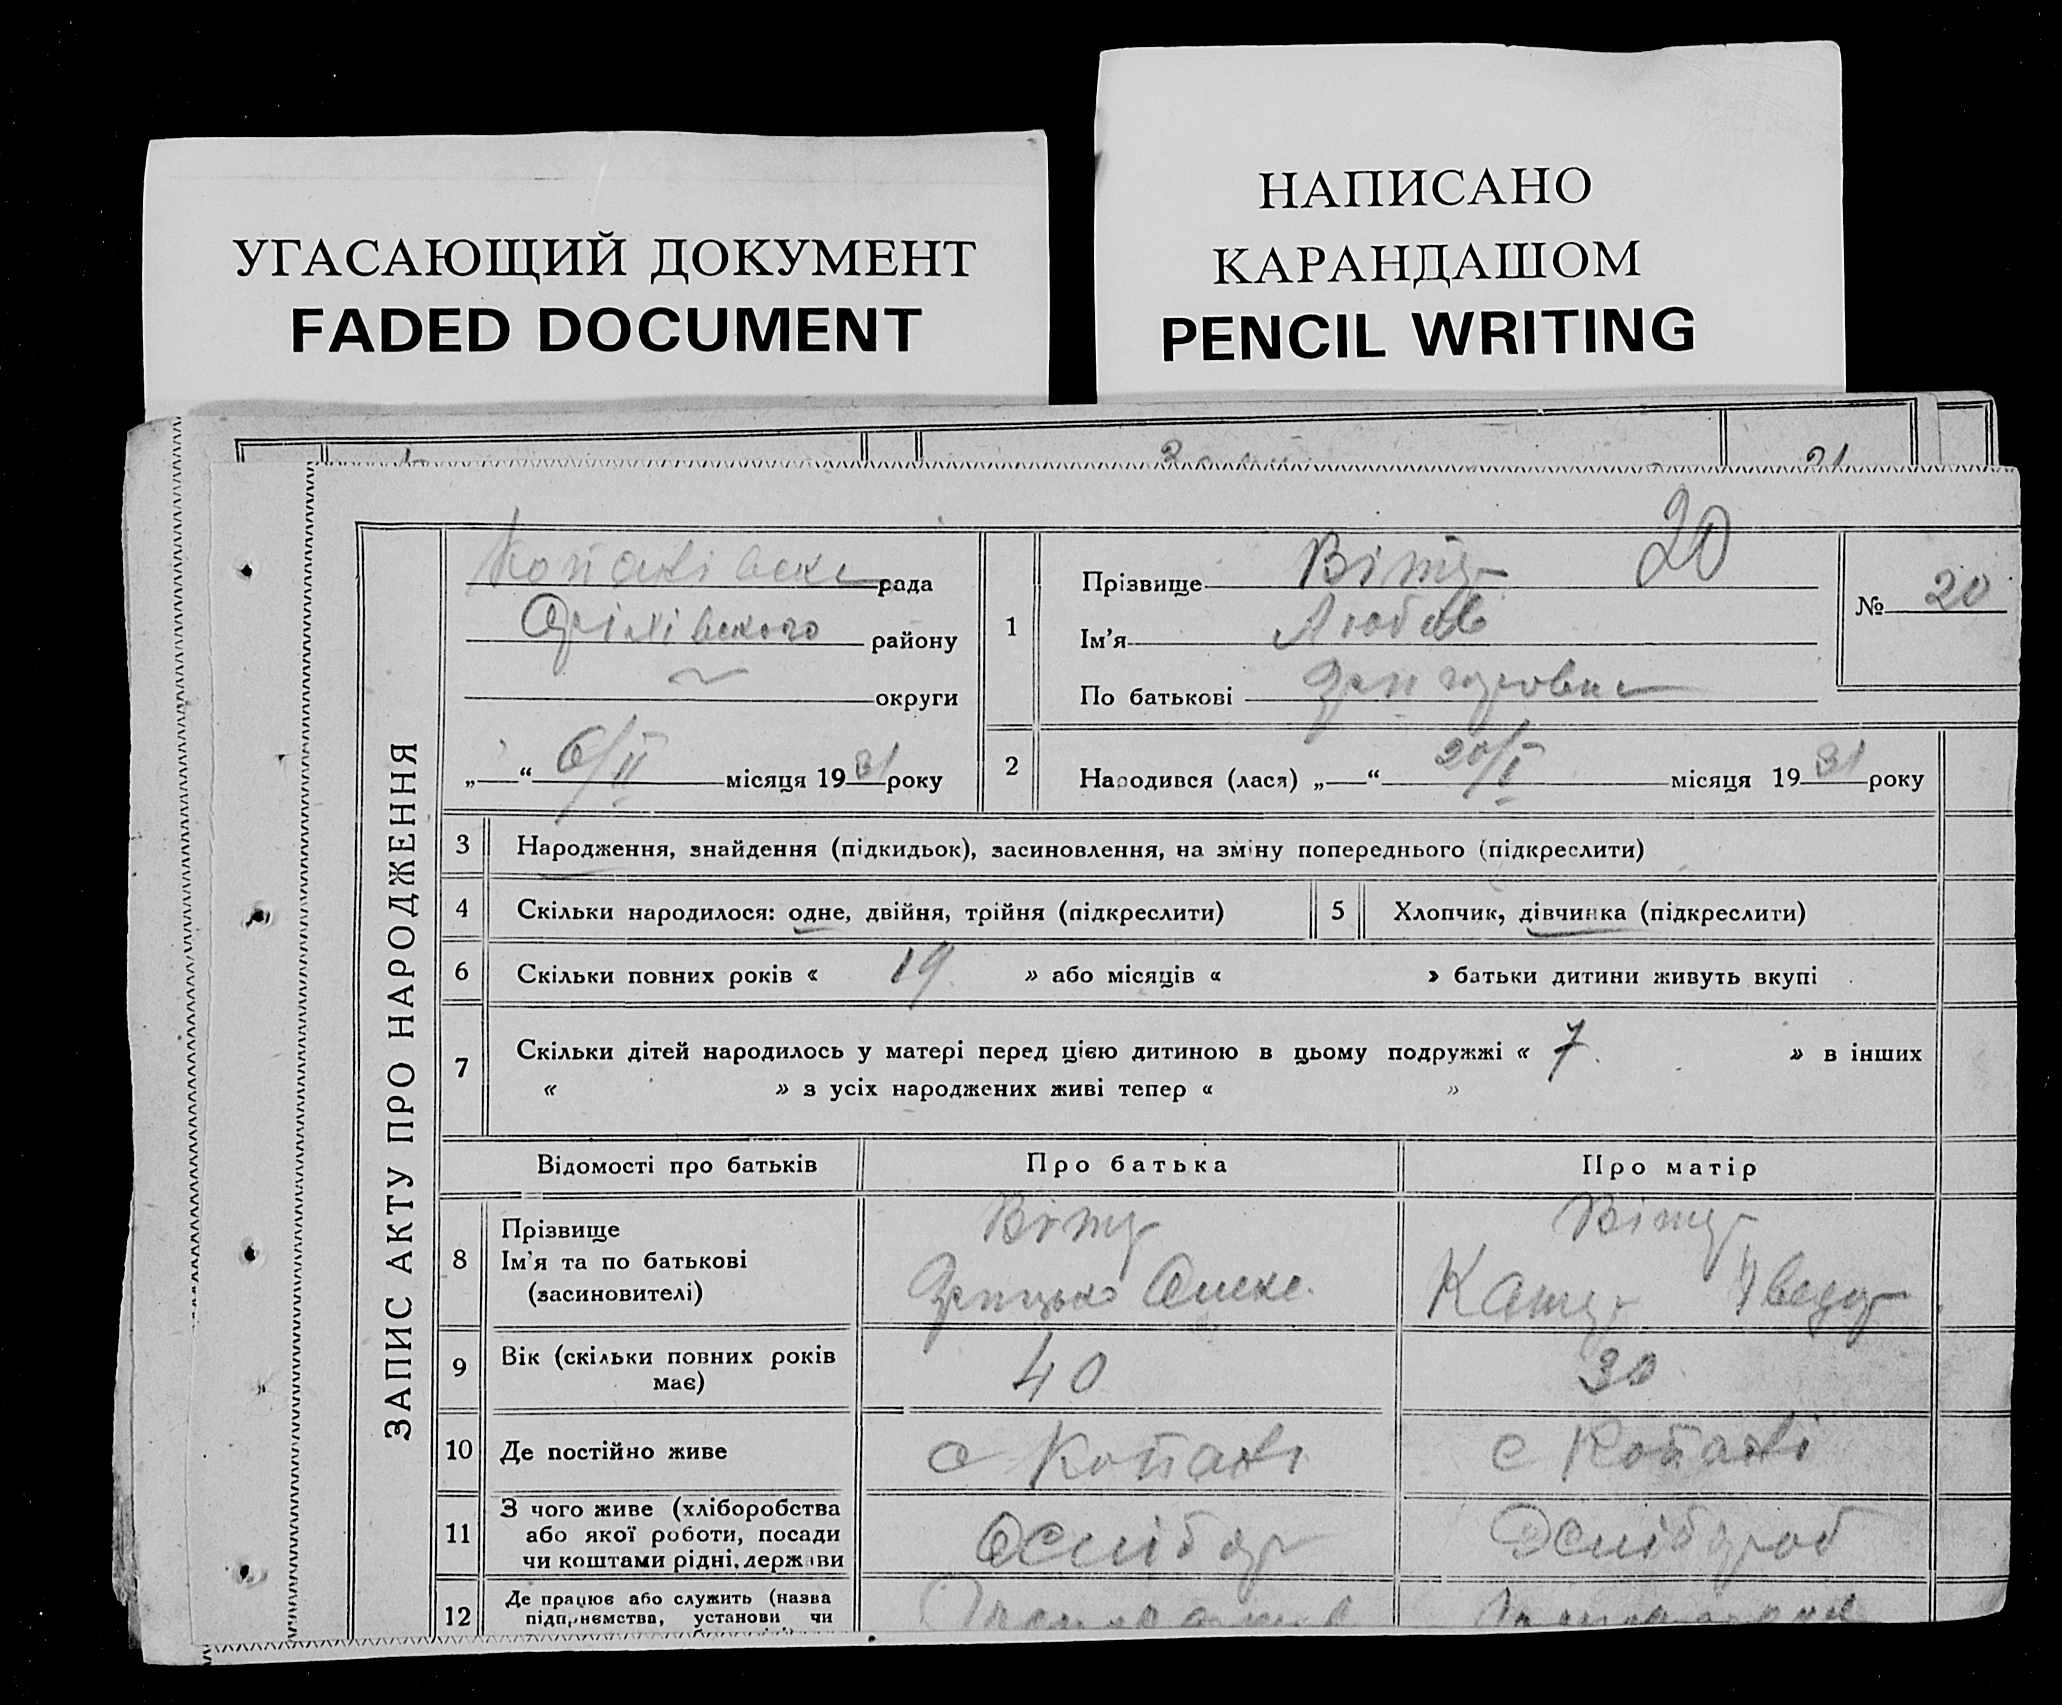 УГАСАЮЩИЙ ДОКУМЕНТ
FADED DOCUMENT
НАПИСАНО
КАРАНДАШОМ
PENCIL WRITING
ЗАПИС АКТУ ПРО НАРОДЖЕННЯ
рада
Оріхівського району
округи
„—“ 6/II місяця 1931 року
1
Прізвище 20
Ім’я Любов
По батькові
№ 20
2
Народився (лася) „—“ 20/I місяця 1931 року
3 Народження, знайдення (підкидьок), засиновлення, на зміну попереднього (підкреслити)
4 Скільки народилося: одне, двійня, трійня (підкреслити)
5 Хлопчик, дівчинка (підкреслити)
6 Скільки повних років « 19 » або місяців « » батьки дитини живуть вкупі
7 Скільки дітей народилось у матері перед цією дитиною в цьому подружжі « 7 » в інших
« » з усіх народжених живі тепер « »
Відомості про батьків Про батька Про матір
8 Прізвище
Ім’я та по батькові
(засновителі)
Грицько Олекс.
9 Вік (скільки повних років має) 40 30
10 Де постійно живе с Копані с Копані
11 З чого живе (хліборобства
або якої роботи, посади
чи коштами рідні, держави
12 Де працює або служить (назва
підприємства, установи чи